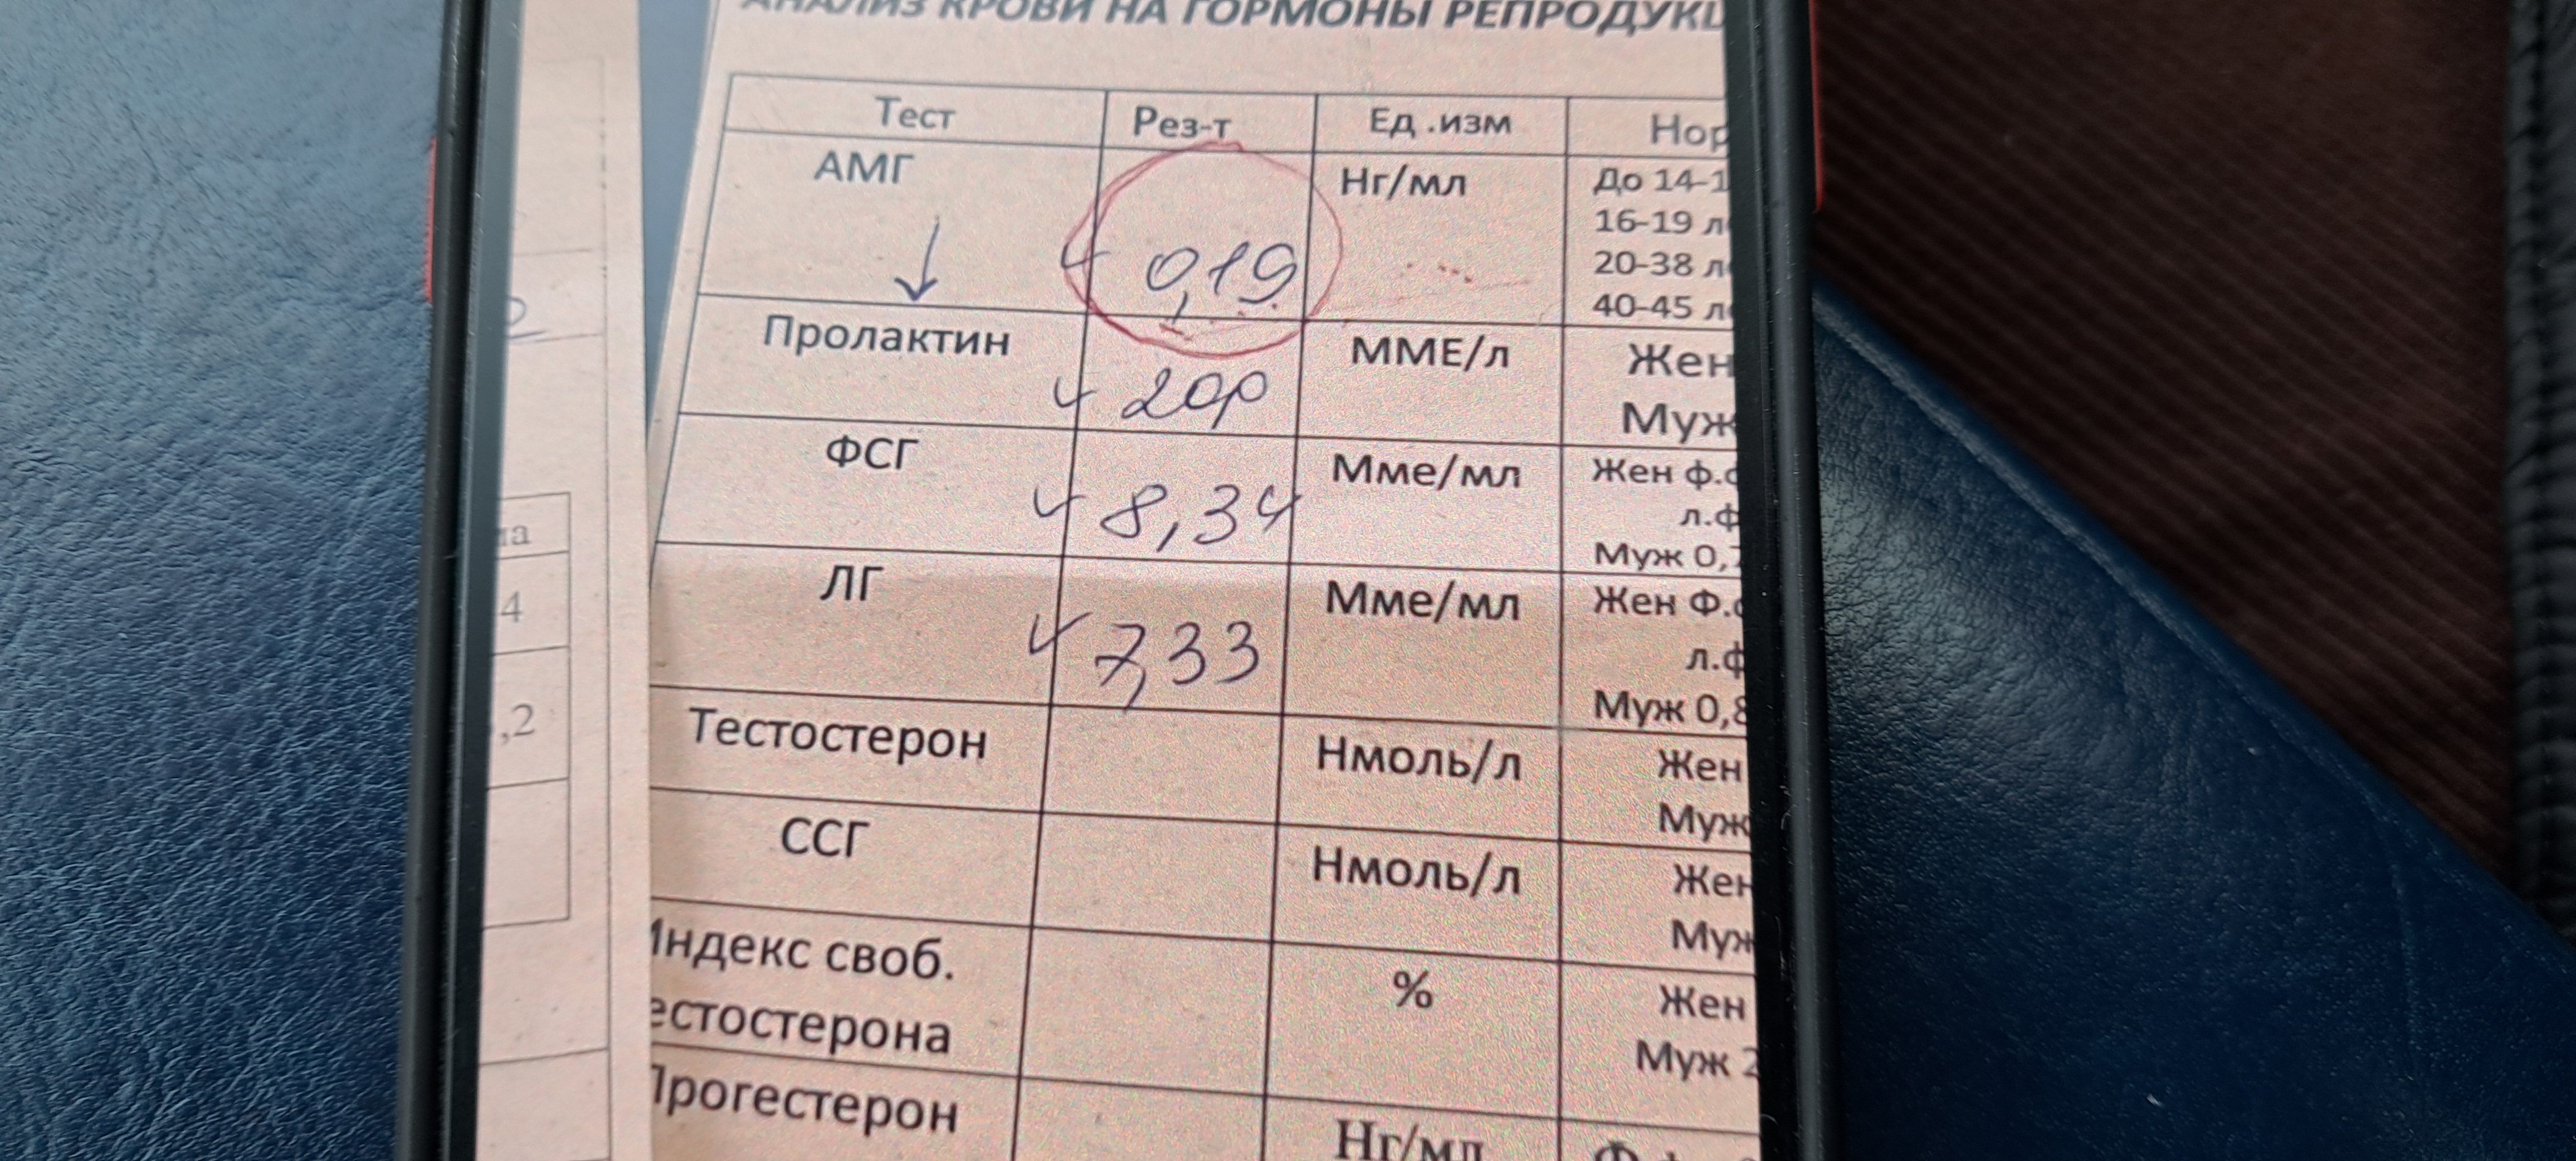 АНАЛИЗ КРОВИ НА ГОРМОНЫ РЕПРОДУКЦ
Тест Рез-т Ед .изм Нор
АМГ 0,19 Нг/мл До 14-1
16-19 л
20-38 л
40-45 л
Пролактин 200 ММЕ/л Жен
Муж
ФСГ 8,34 Мме/мл Жен ф.ф
л.ф
Муж 0,7
ЛГ 7,33 Мме/мл Жен Ф.ф
л.ф
Муж 0,8
Тестостерон Нмоль/л Жен
Муж
ССГ Нмоль/л Жен
Муж
Индекс своб. % Жен
естостерона Муж 2
Прогестерон Нг/мл
2
на
4
,2